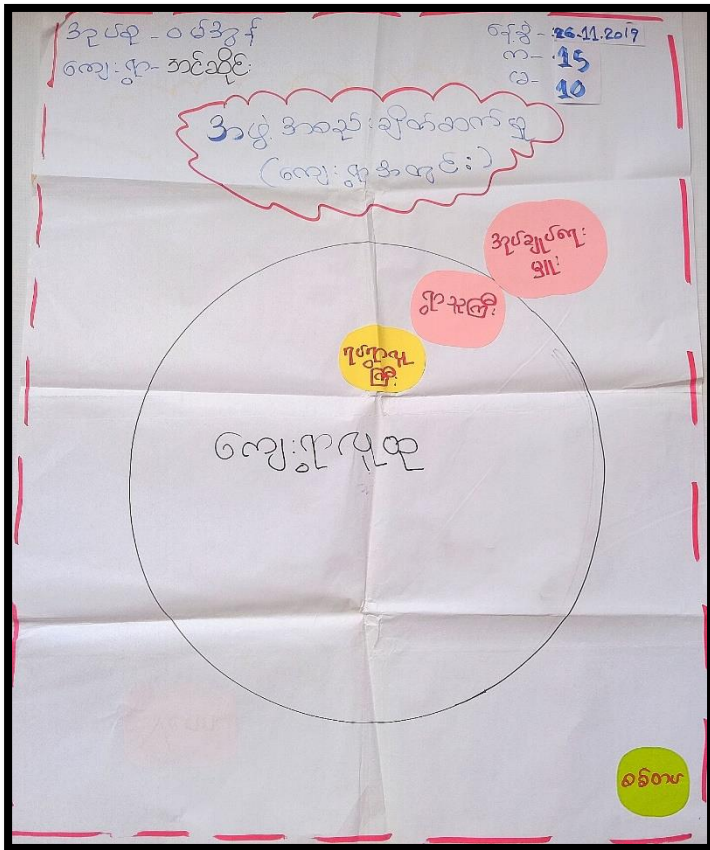 အုပ်စု - ဝမ်အွန်
ကျေးရွာ - အင်ဆိုင်း
နေ့စွဲ - 26.11.2019
က - 15
မ - 10
အဖွဲ့အစည်းချိတ်ဆက်မှု
(ကျေးရွာအတွင်း)
အုပ်ချုပ်ရေး
မှူး
ရွာသူကြီး
ရပ်ရွာလူ
ကြီး
ကျေးရွာလူထု
စစ်တပ်